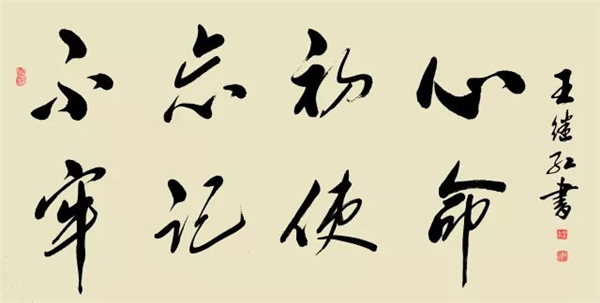 不忘初心
牢记使命
王继红书